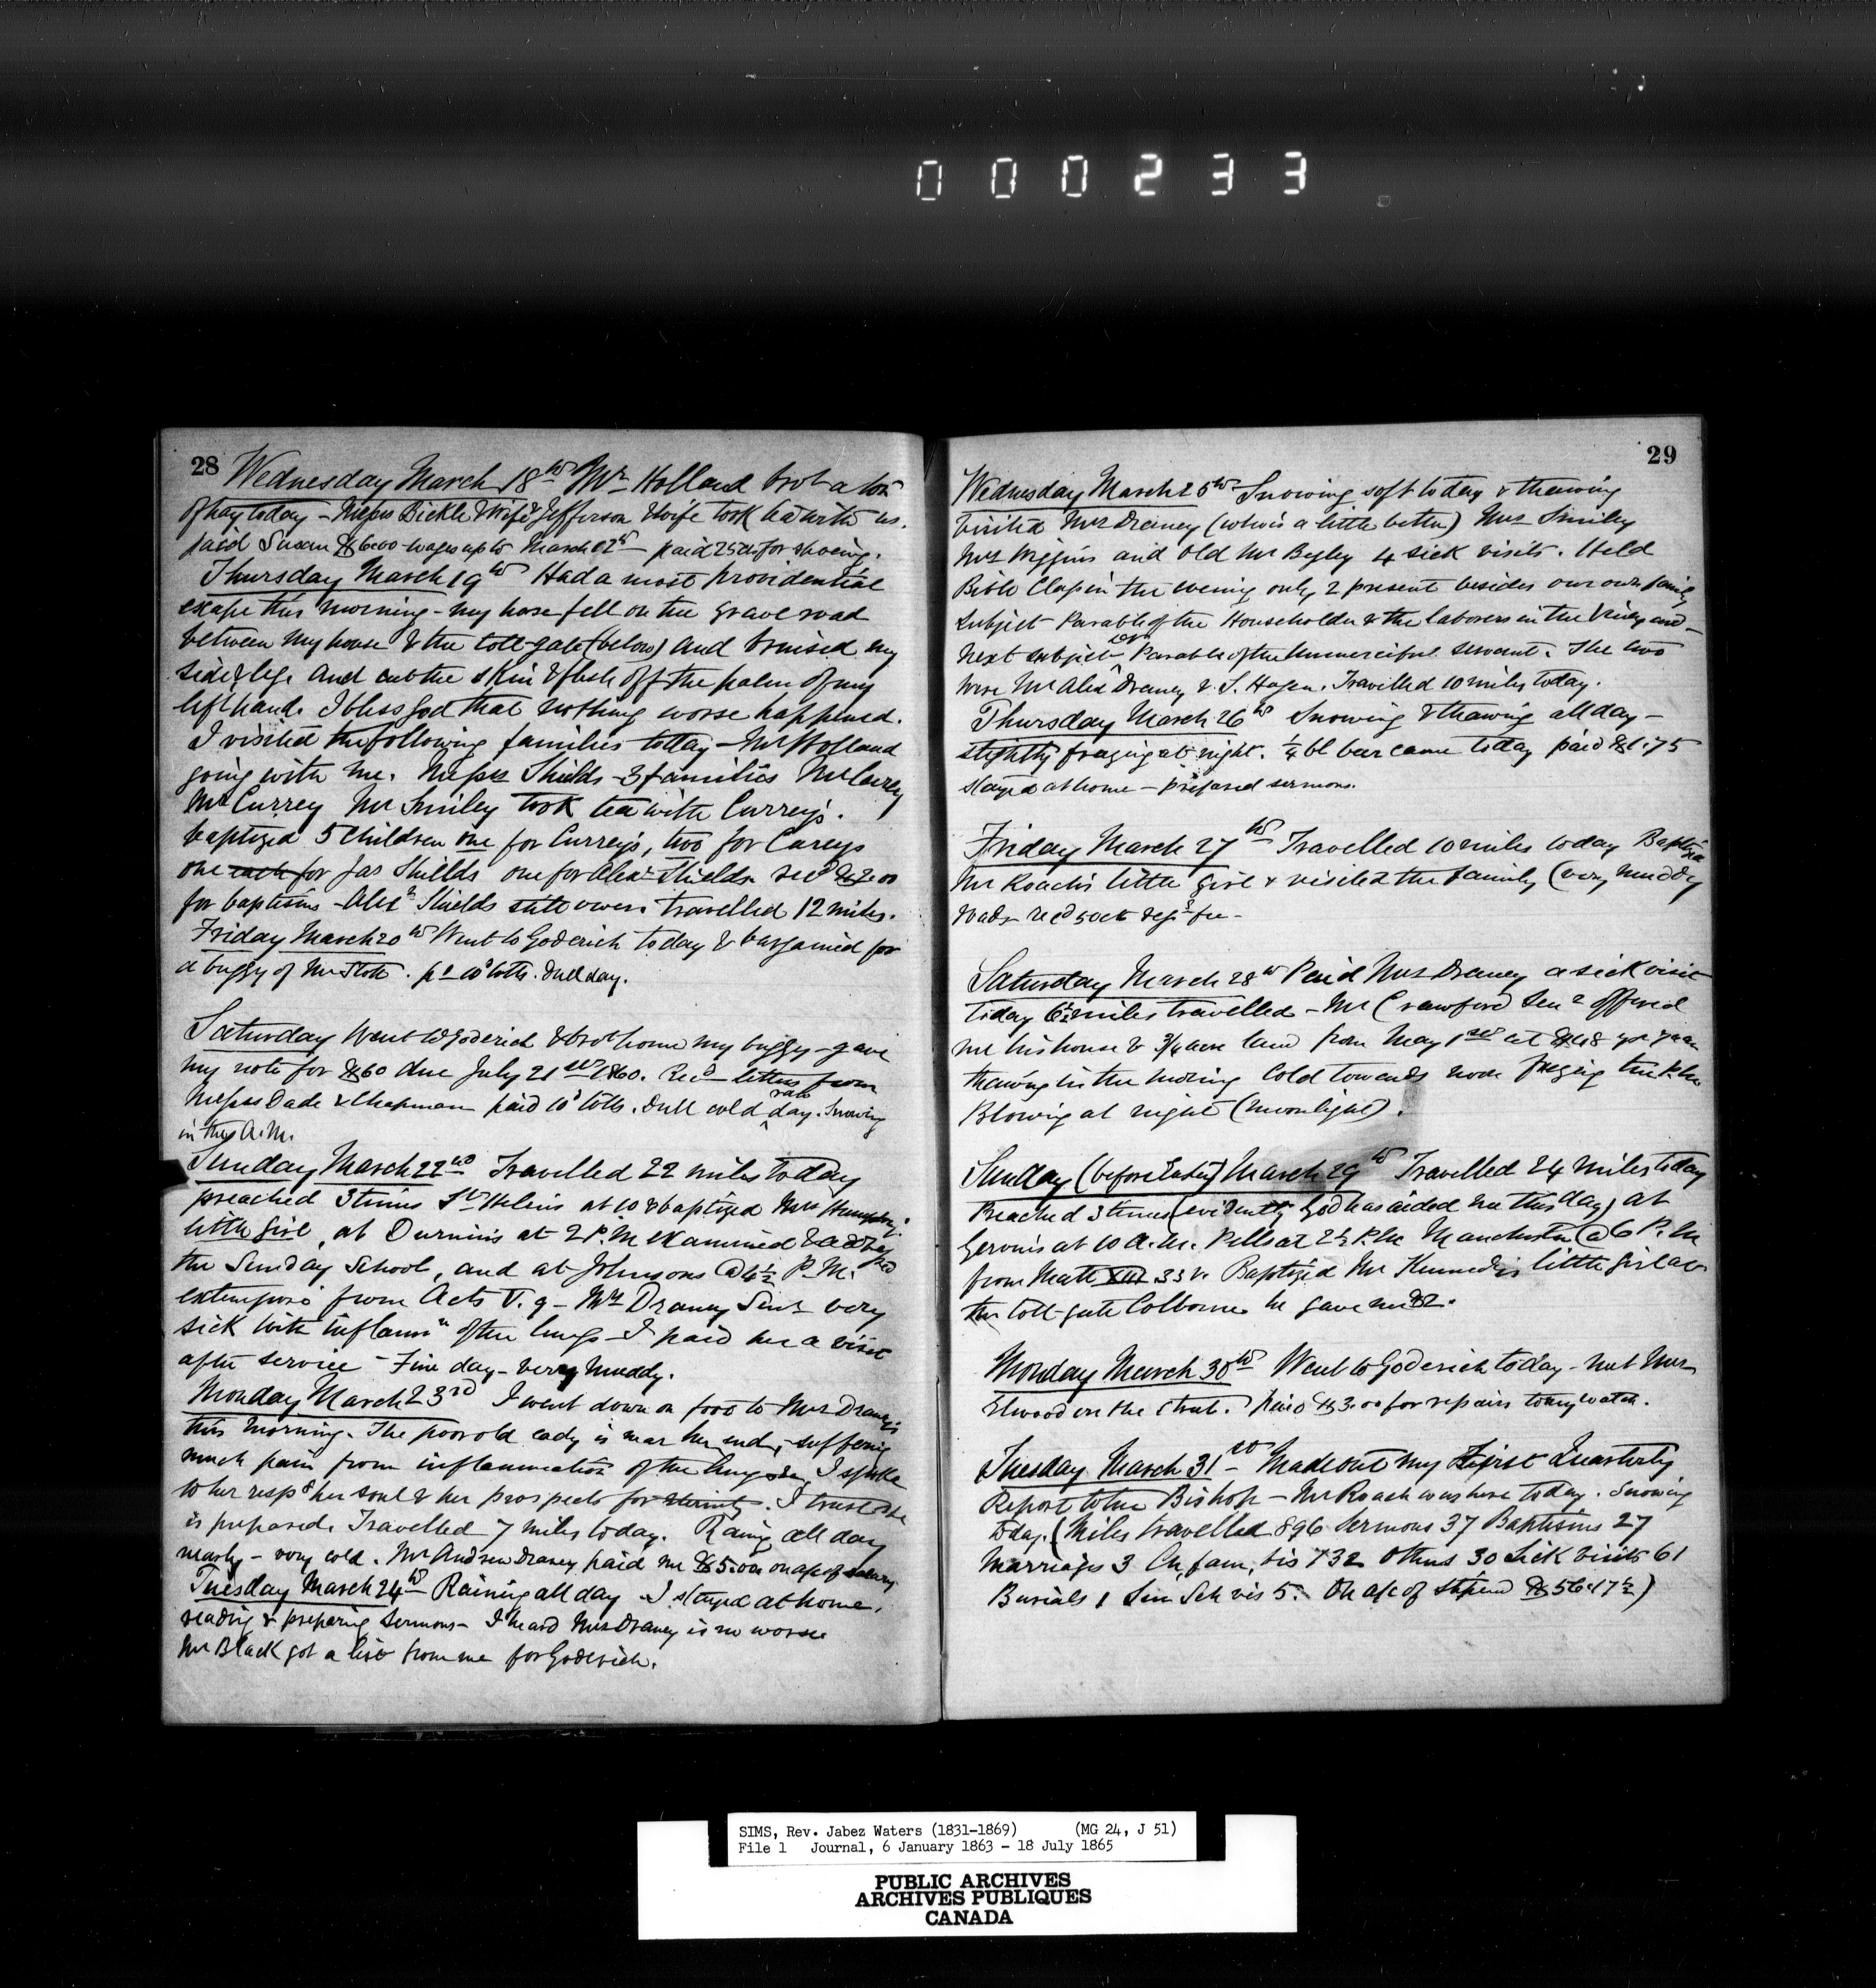 000233
28 Wednesday March 18th Mr Holland brot a ton
of hay today - Messrs Bickle & Wife & Jefferson & wife took tea with us.
paid Susan $6.00 wages up to March 12th - paid 25cts for shoeing.
Thursday March 19th Had a most providential
escape this morning - my horse fell on the gravel road
between my house & the toll-gate (below) and bruised my
side & legs and cut the skin & flesh off the palm of my
left hand. I bless God that nothing worse happened.
I visited the following families today - Mr Holland
going with me. Messrs Shields - 3 families Mr Carey
Mr Currey Mr Smiley took tea with Currey's.
baptized 5 children one for Currey's, two for Careys
one each for Jas Shields one for Alexr Shields recd $2.00
for baptisms - Alexr Shields still owes. travelled 12 miles.
Friday March 20th Went to Goderich today & bargained for
a buggy of Mr Stott. pd 10cts tolls. Dull day.
Saturday Went to Goderich & brot home my buggy - gave
my note for $60 due July 21st 1860. Recd letters from
Messrs Dade & Chapman paid 10cts tolls. Dull cold raw day. Snowing
in the A.M.
Sunday March 22nd Travelled 22 miles today
preached 3 times St Helens at 10 & baptized Mrs Humphrey's
little girl, at Durnin's at 2 P.M examined & addressed
the Sunday School, and at Johnsons @ 4½ P.M.
extempore from Acts V. 9 - Mrs Draney Senr very
sick with inflamn of the lungs - I paid her a visit
after service - Fine day - very muddy.
Monday March 23rd I went down on foot to Mrs Draney's
this morning. The poor old lady is near her end, suffering
much pain from inflammation of the lungs I spoke
to her respg her soul & her prospects for Eternity. I trust she
is prepared. Travelled 7 miles today. Raing all day
nearly - very cold. Mr Andrew Draney paid me $5.00 on a/c of salary
Tuesday March 24th Raining all day I stayed at home,
reading & preparing sermons - I heard Mrs Draney is no worse
Mr Black got a list from me for Goderich.
29
Wednesday March 25th Snowing soft today & thawing
Visited Mrs Draney (who is a little better) Mrs Smiley
Mrs Wiggins and Old Mr Begley 4 sick visits. Held
Bible Class in the evening only 2 present besides our own family
Subject Parable of the Householder & the laborers in the Vineyard -
Next subject Parable of the Unmerciful servant. The two
were Mr Alexr Draney & J. Hagen. Travelled 10 miles today.
Thursday March 26th Snowing & thawing all day -
slightly freezing at night. ¼ bl beer came today paid $1.75
stayed at home - prepared sermons.
Friday March 27th Travelled 10 miles today Baptized
Mr Roach's little girl & visited the family (very muddy
roads recd 50cts regr fee -
Saturday March 28th Paid Mrs Draney a sick visit
today 6½ miles travelled - Mr Crawford Senr offered
me his house & ¾ acre land from May 1st at $48 per year
thawing in the morning Cold towards noon freezing the P.M.
Blowing at night (moonlight).
Sunday (before Easter) March 29th Travelled 24 miles today
Preached 3 times (evidently God has aided me this day) at
Gervin's at 10 A.M. Pells at 2½ P.M. Manchester @ 6 P.M
from Matt XIII 33 v. Baptized Mr Kennedy's little girl at
the toll-gate Colborne he gave me $2.
Monday March 30th Went to Goderich today - met Mr
Elwood on the street. paid $3.00 for repairs to my watch.
Tuesday March 31st Made out my First Quarterly
Report to the Bishop - Mr Roach was here today. Snowing
today. (Miles travelled 896 Sermons 37 Baptisms 27
Marriages 3 Ch. fam. vis 132 Others 30 Sick visits 61
Burials 1 Sun Sch vis 5. On a/c of stipend $56.17½)
SIMS, Rev. Jabez Waters (1831-1869) (MG 24, J 51)
File 1 Journal, 6 January 1863 - 18 July 1865
PUBLIC ARCHIVES
ARCHIVES PUBLIQUES
CANADA